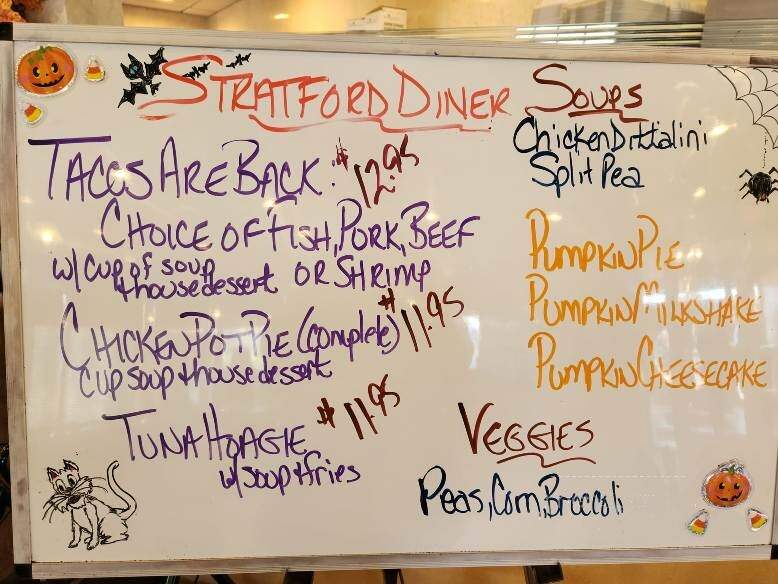 STRATFORD DINER
TACOS ARE BACK: $12.95
CHOICE OF FISH, PORK, BEEF
w/ cup of soup OR SHRIMP
+ house dessert
CHICKEN POT PIE (complete) $11.95
cup soup + house dessert
TUNA HOAGIE $11.95
w/ soup + fries
SOUPS
Chicken Dittalini
Split Pea
PUMPKIN PIE
PUMPKIN MILKSHAKE
PUMPKIN CHEESECAKE
VEGGIES
Peas, Corn, Broccoli